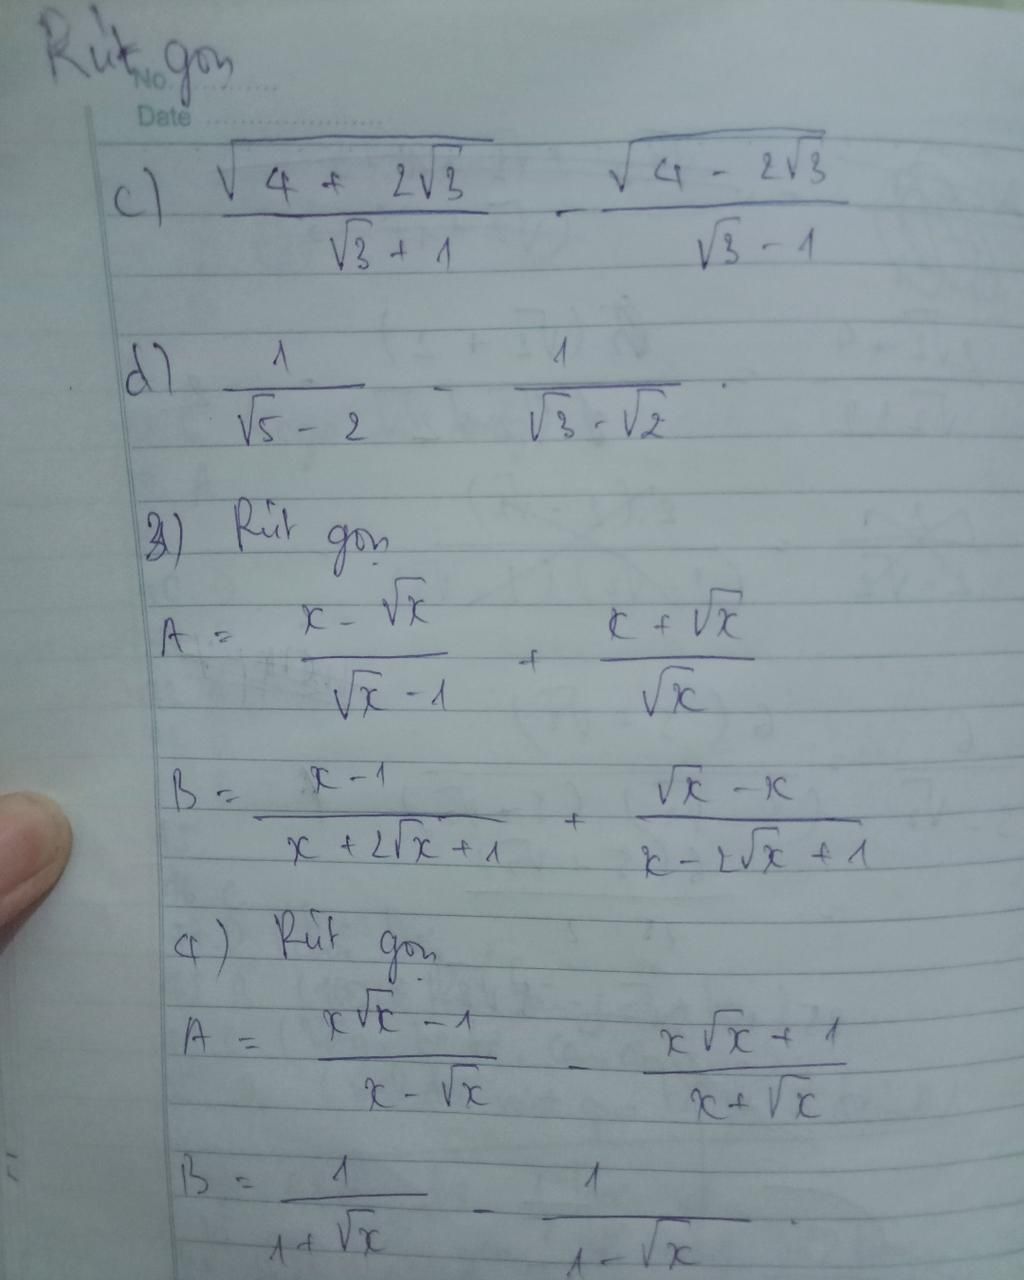 Rút gọn
No. ............
Date ......................
c) √(4 + 2√3) / (√3 + 1) - √(4 - 2√3) / (√3 - 1)
d) 1 / (√5 - 2) - 1 / (√3 - √2) .
3) Rút gọn
A = (x - √x) / (√x - 1) + (x + √x) / √x
B = (x - 1) / (x + 2√x + 1) + (√x - x) / (x - 2√x + 1)
4) Rút gọn
A = (x√x - 1) / (x - √x) - (x√x + 1) / (x + √x)
B = 1 / (1 + √x) - 1 / (1 - √x) .